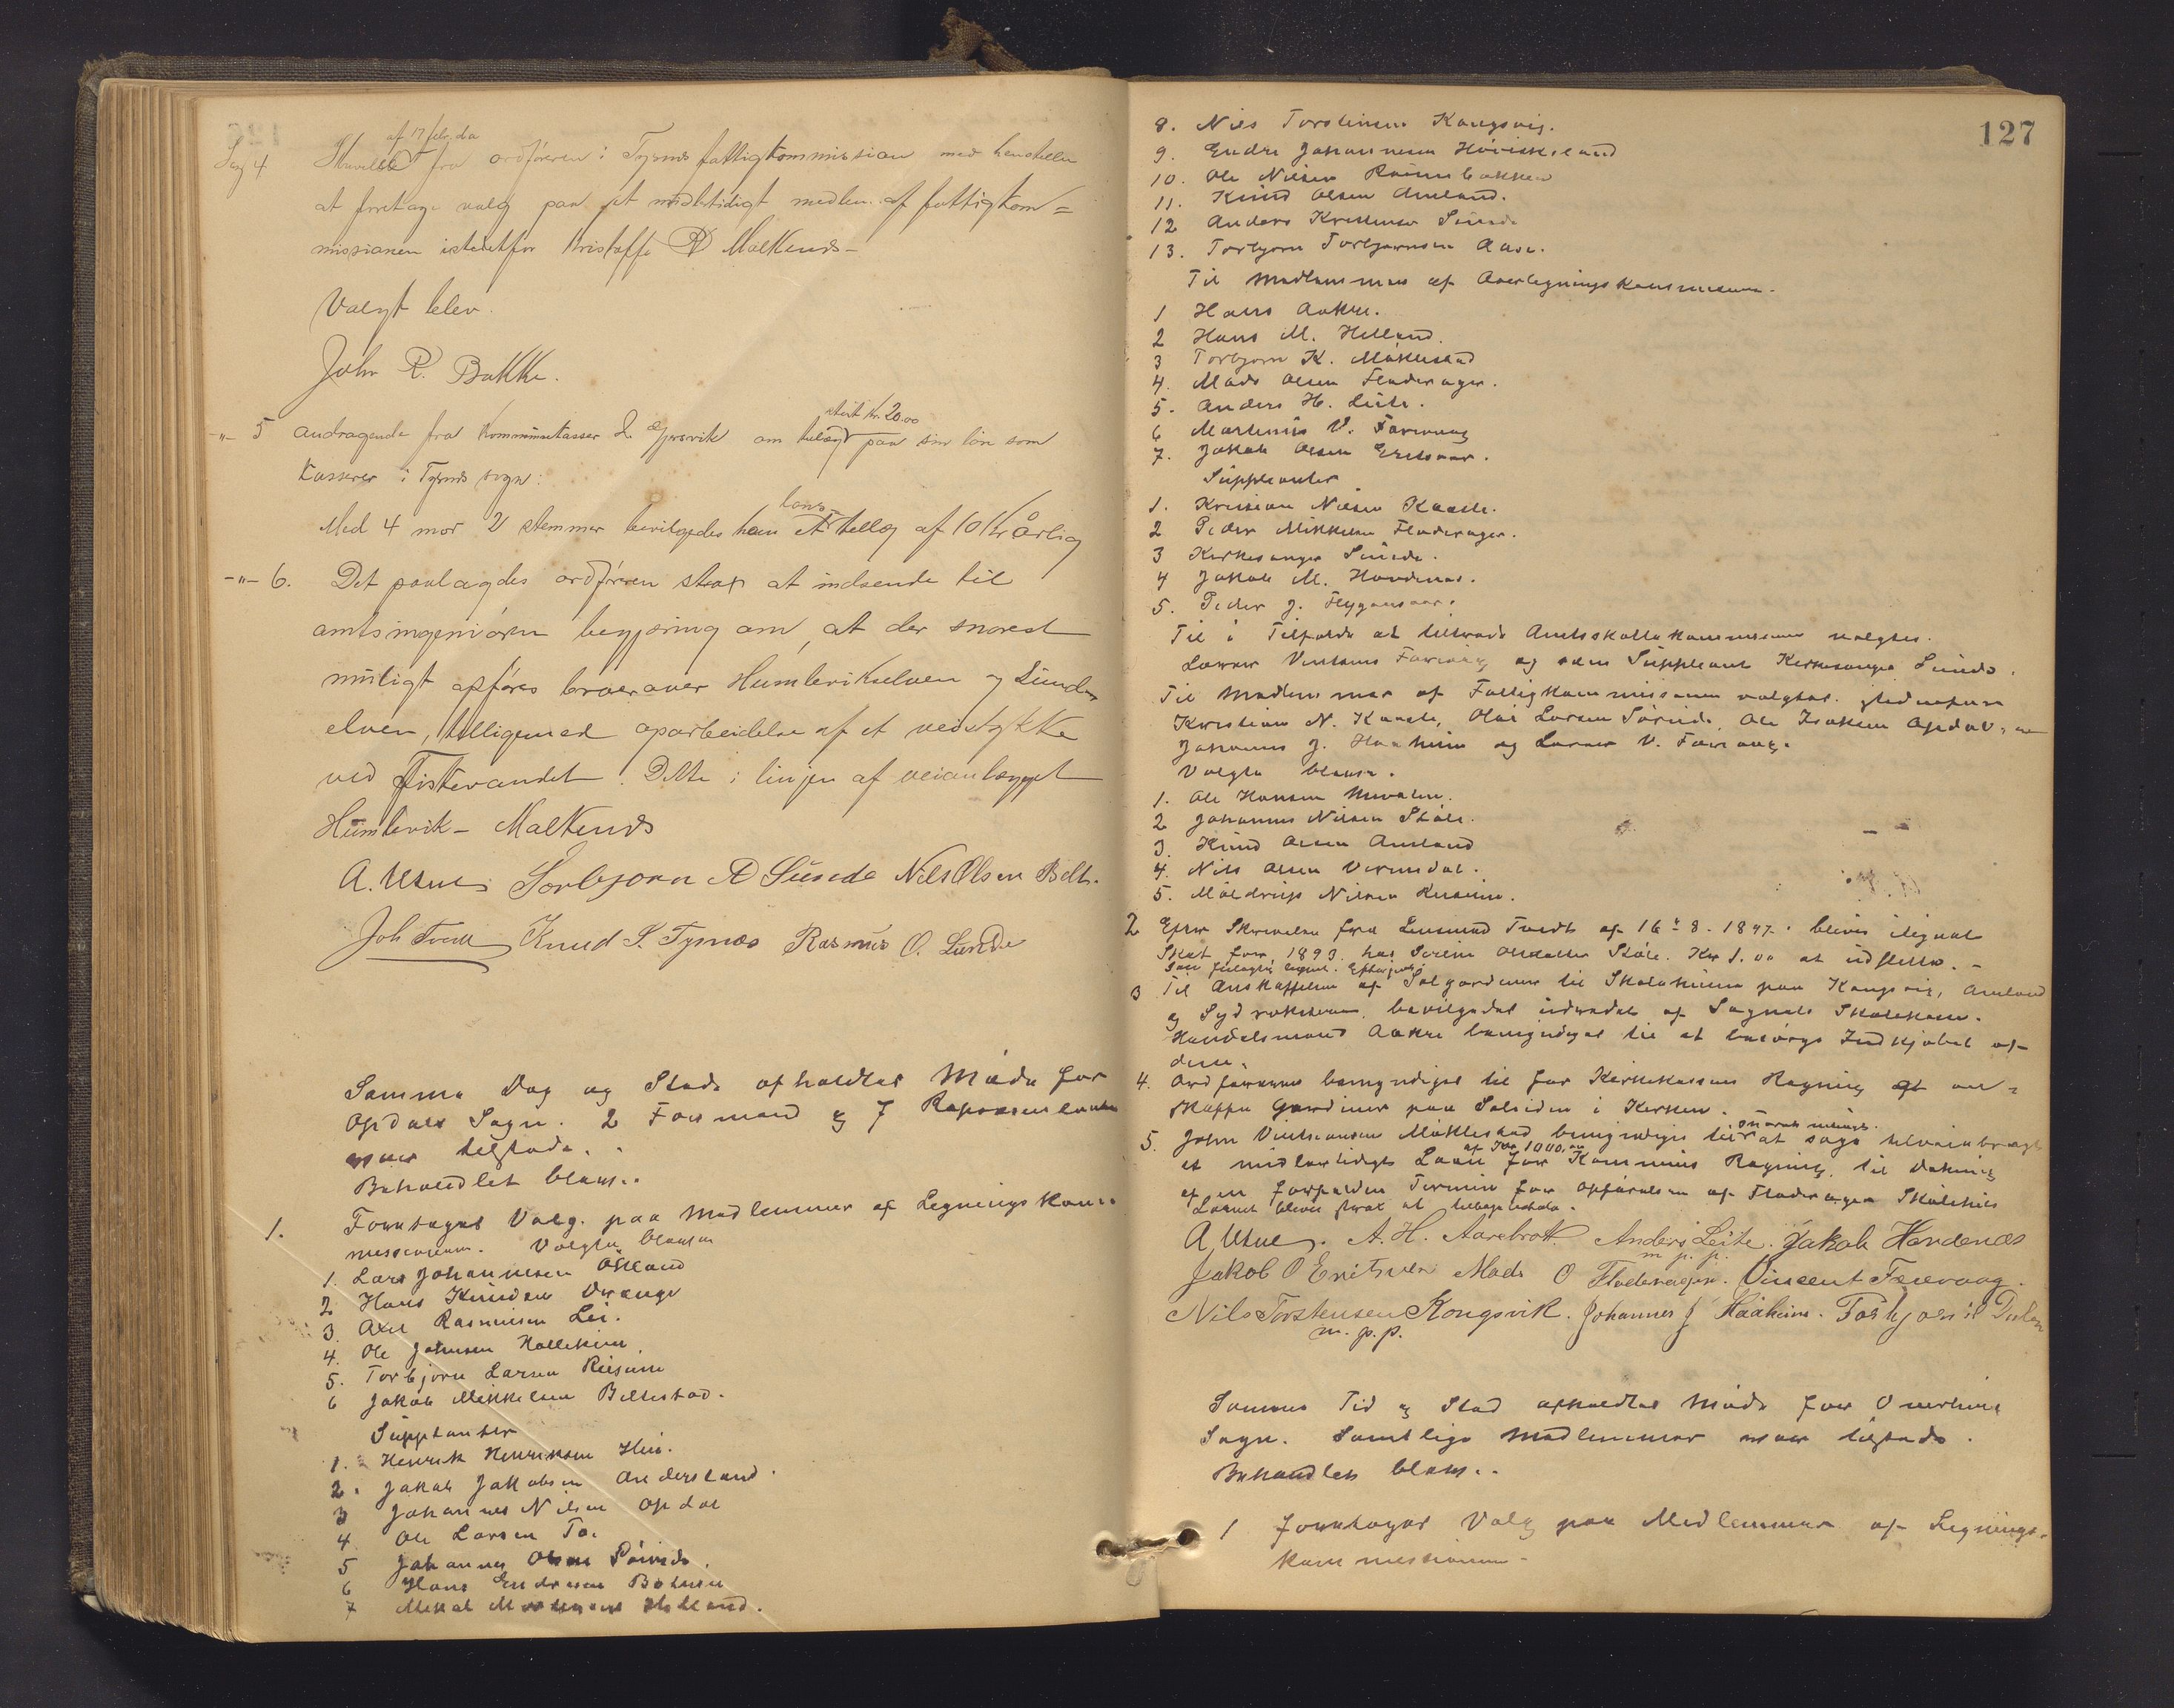 af 17 febr. da
Sag 4 Skrivelse fra ordføreren i Tysnes fattigkommission med henstillen
at foretage valg paa et midlertidigt medlem af fattigkom=
missionen istedetfor Kristoffer R Malkenes
Valgt blev.
John R. Bakke.
stort kr. 20.00
-"- 5 andragende fra Kommunekasser Gjersvik om tillæg paa sin løn som
Kasserer i Tysnes sogn:
Med 4 mod 2 stemmer bevilgedes ham et tillæg af 10 Kr årlig
-"- 6. Det paalægdes ordføreren strax at indsende til
amtsingeniøren begjæring om, at der snarest
muligt opføres broer over Humlevikselven og Sunde
elven, tilligemed oparbeidelse af et veistykke
ved Fistevandet. Dette i linjen af veianlægget
Humlevik - Malkenes
A. Utne Torbjørn A Sunde Nils Olsen Belt.
Joh Tvedt Knud P. Tysnes Rasmus O. Sunde
Samme Dag og Sted afholdtes Møde for
Opdals Sogn. 2 Formænd og 7 Repræsentanter
var tilstede.
Behandlet blev:
1. Foretoges Valg paa Medlemmer af Legningskom=
missionen. Valgte blev
1. Lars Johannesen
2 Hans Knudsen Drange
3. Axel Rasmusen Lei.
4. Ole Johnsen Hallekim
5. Torbjørn Larsen
6 Jakob Mikkelsen Beltestad.
Suppleanter
1. Henrik Henriksen
2. Jakob Jakobsen
3 Johannes Nilsen Opdal
4 Ole Larsen Tø.
5 Johannes Olsen
6 Hans Endresen
7 Mikal
127
8. Nils Torstensen Kongsvig.
9. Endre Johannesen
10. Ole Nilsen
11. Knud Olsen Amland.
12 Anders Kristensen Sunde
13. Torbjørn Torbjørnsen Aase.
Til Medlemmer af Overlegningskommissionen.
1 Hans Aakre.
2 Hans M. Helland.
3 Torbjørn K. Møklestad
4. Mads Olsen Fladerager.
5. Anders H. Leite.
6 Martinus V. Færevaag
7. Jakob Olsen
Suppleanter
1. Kristian Nilsen
2 Peder Mikkelsen Fladerager.
3 Kirkesanger Sunde.
4 Jakob M. Hovdenes.
5. Peder J. Flygansvær.
Til i Tilfælde at tiltræde Amtsskattekommissionen valgtes.
Lærer Vintsens Færevaag og som Suppleant Kirkesanger Sunde.
Til Medlemmer af Fattigkommissionen valgtes. istedenfor
Kristian N. Larsen Ole Isaksen Opdal, og
Johannes J. Haaheim og Lærer V. Færevaag.
Valgte blev.
1. Ole Hansen
2 Johannes Nilsen Støle.
3. Knud Olsen Amland
4. Nils Olsen
5. Nilsen
2 Efter Skrivelse fra Lensmand Tvedt af 16de 8. 1897. blev ilignet
Skat for 1893 hos Støle. Kr 1.00 at udslette. -
3 Til Anskaffelse af Solgardiner til Skolehuse paa Kongsvig, Amland
og bevilgedes
Handelsmand Aakre bemyndiges til at besørge Indkjøbet af
disse.
4. Ordføreren bemyndiges til for Kirkekassens Regning at an=
skaffe Gardiner paa Solsiden i Kirken.
snarest muligt.
5. John Vintsensen Møklestad bemyndiges til at søge
af Kr 1000,00
et midlertidigt Laan for Kommunens Regning til Dækning
af en forfalden Termin for Opførelsen af Fladerager Skolehus
Laanet bliver strax at tilbagebetale.
A. Utne. A. H. Aarebrott. Anders Leite. Jakob Hovdenæs
m p. p.
Jakob O Mads O Fladerager. Vincent Færevaag.
Nils Torstensen Kongsvik. Johannes J Haaheim. Torbjørn
m. p. p.
Samme Tid og Sted afholdtes Møde for Onarheims
Sogn. Samtlige Medlemmer var tilstede.
Behandlet blev:
1 Foretoges Valg paa Medlemmer af Legnings-
kommissionen -